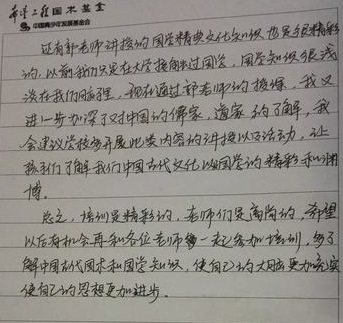 希望工程国术基金
中国青少年发展基金会
还有郭老师讲授的国学精典文化知识也是很精彩
的,以前我们只是在大学接触过国学,国学知识很浅
淡在我们脑里,现在通过郭老师的授课,我又
进一步加深了对中国的儒家,道家的了解,我
会建议学校多开展此类内容的讲授以及活动,让
孩子们了解我们中国古代文化以及国学的精彩和渊
博。
总之,培训是精彩的,老师们是高尚的,希望
以后有机会再和各位老师一起参加培训,多了
解中国古代国术和国学知识,使自己的大脑更加充实
使自己的思想更加进步。